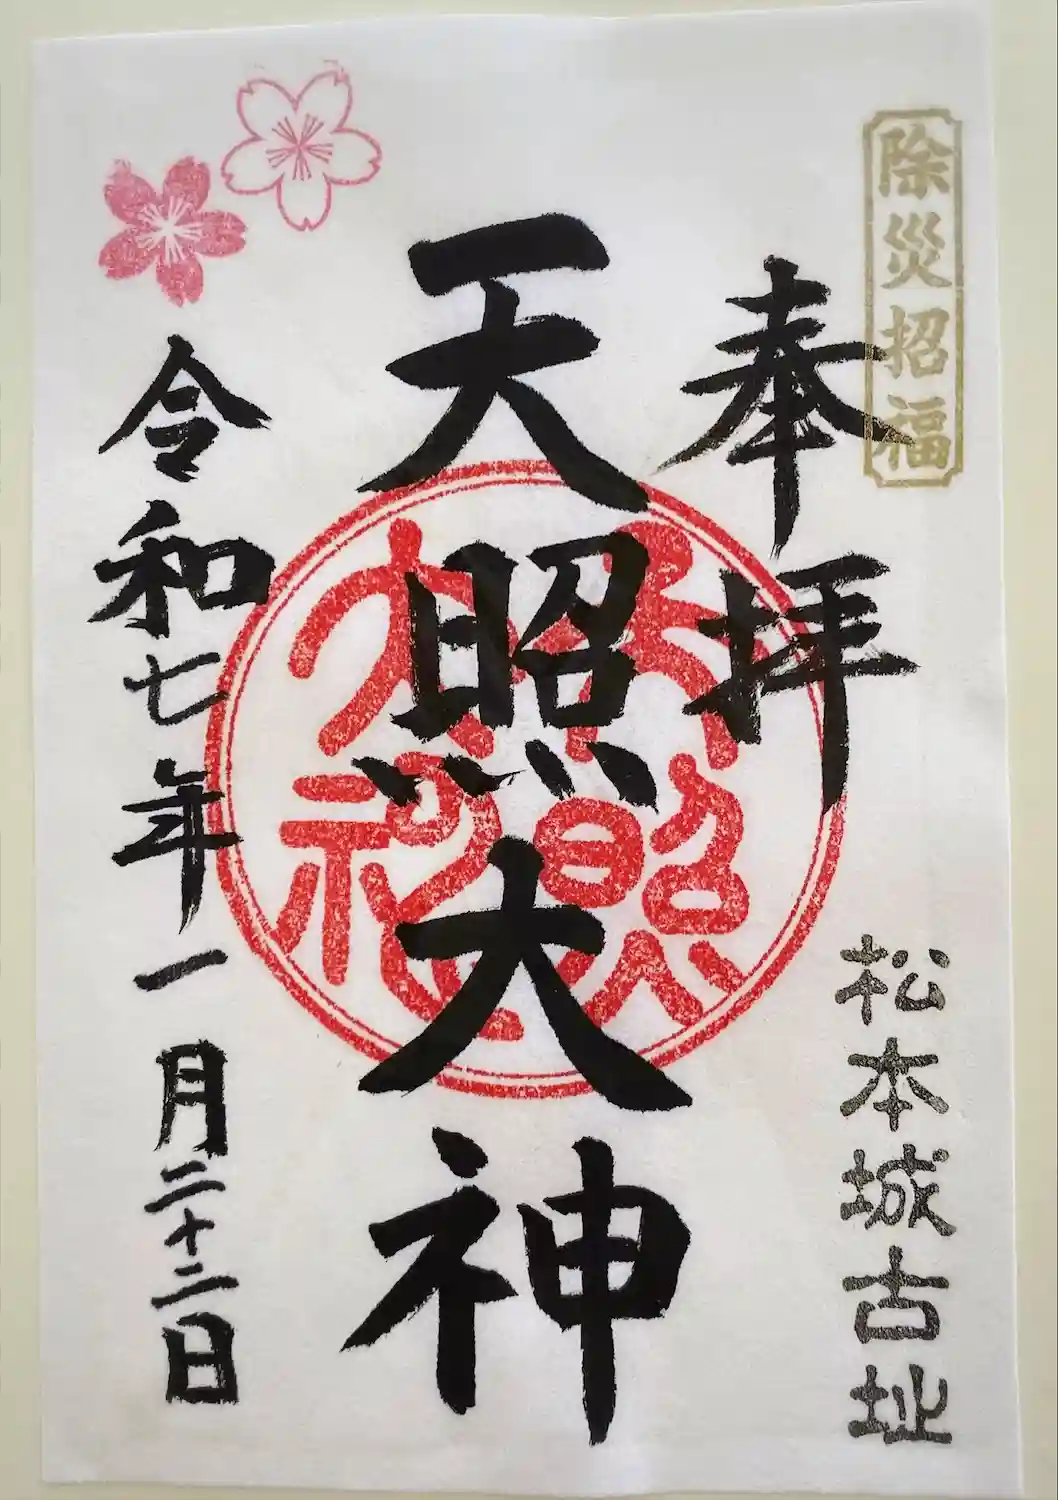 除災招福
奉拝
松本城古址
天照大神
天照
大神
令和七年一月二十二日